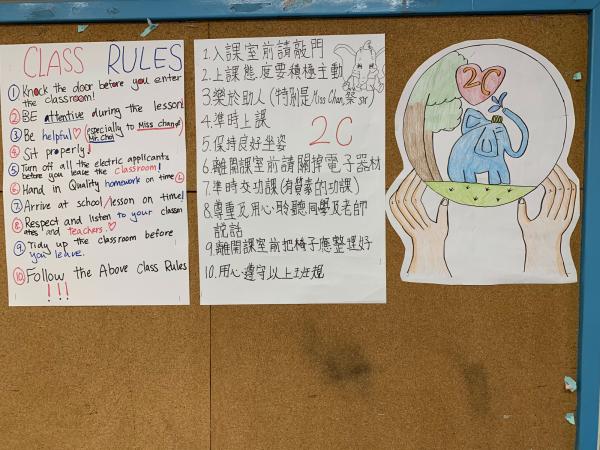 CLASS RULES
① Knock the door before you enter
the classroom!
② BE attentive during the lesson!
③ Be helpful♡ (especially to Miss chan &
Mr. Choi)
④ Sit properly!
⑤ Turn off all the electric applicants
before you leave the classroom!
⑥ Hand in Quality homework on time
⑦ Arrive at school/lesson on time!
⑧ Respect and listen to your classm
ates and teachers.♡
⑨ Tidy up the classroom before
you leave.
⑩ Follow the Above Class Rules
!!!
1.入課室前請敲門
2.上課態度要積極主動
3.樂於助人(特別是Miss Chan,蔡 sir)
4.準時上課
5.保持良好坐姿
2C
6.離開課室前請關掉電子器材
7.準時交功課(有質素的功課)
8.尊重及用心聆聽同學及老師
說話
9.離開課室前把椅子應整理好
10.用心遵守以上班規
2C